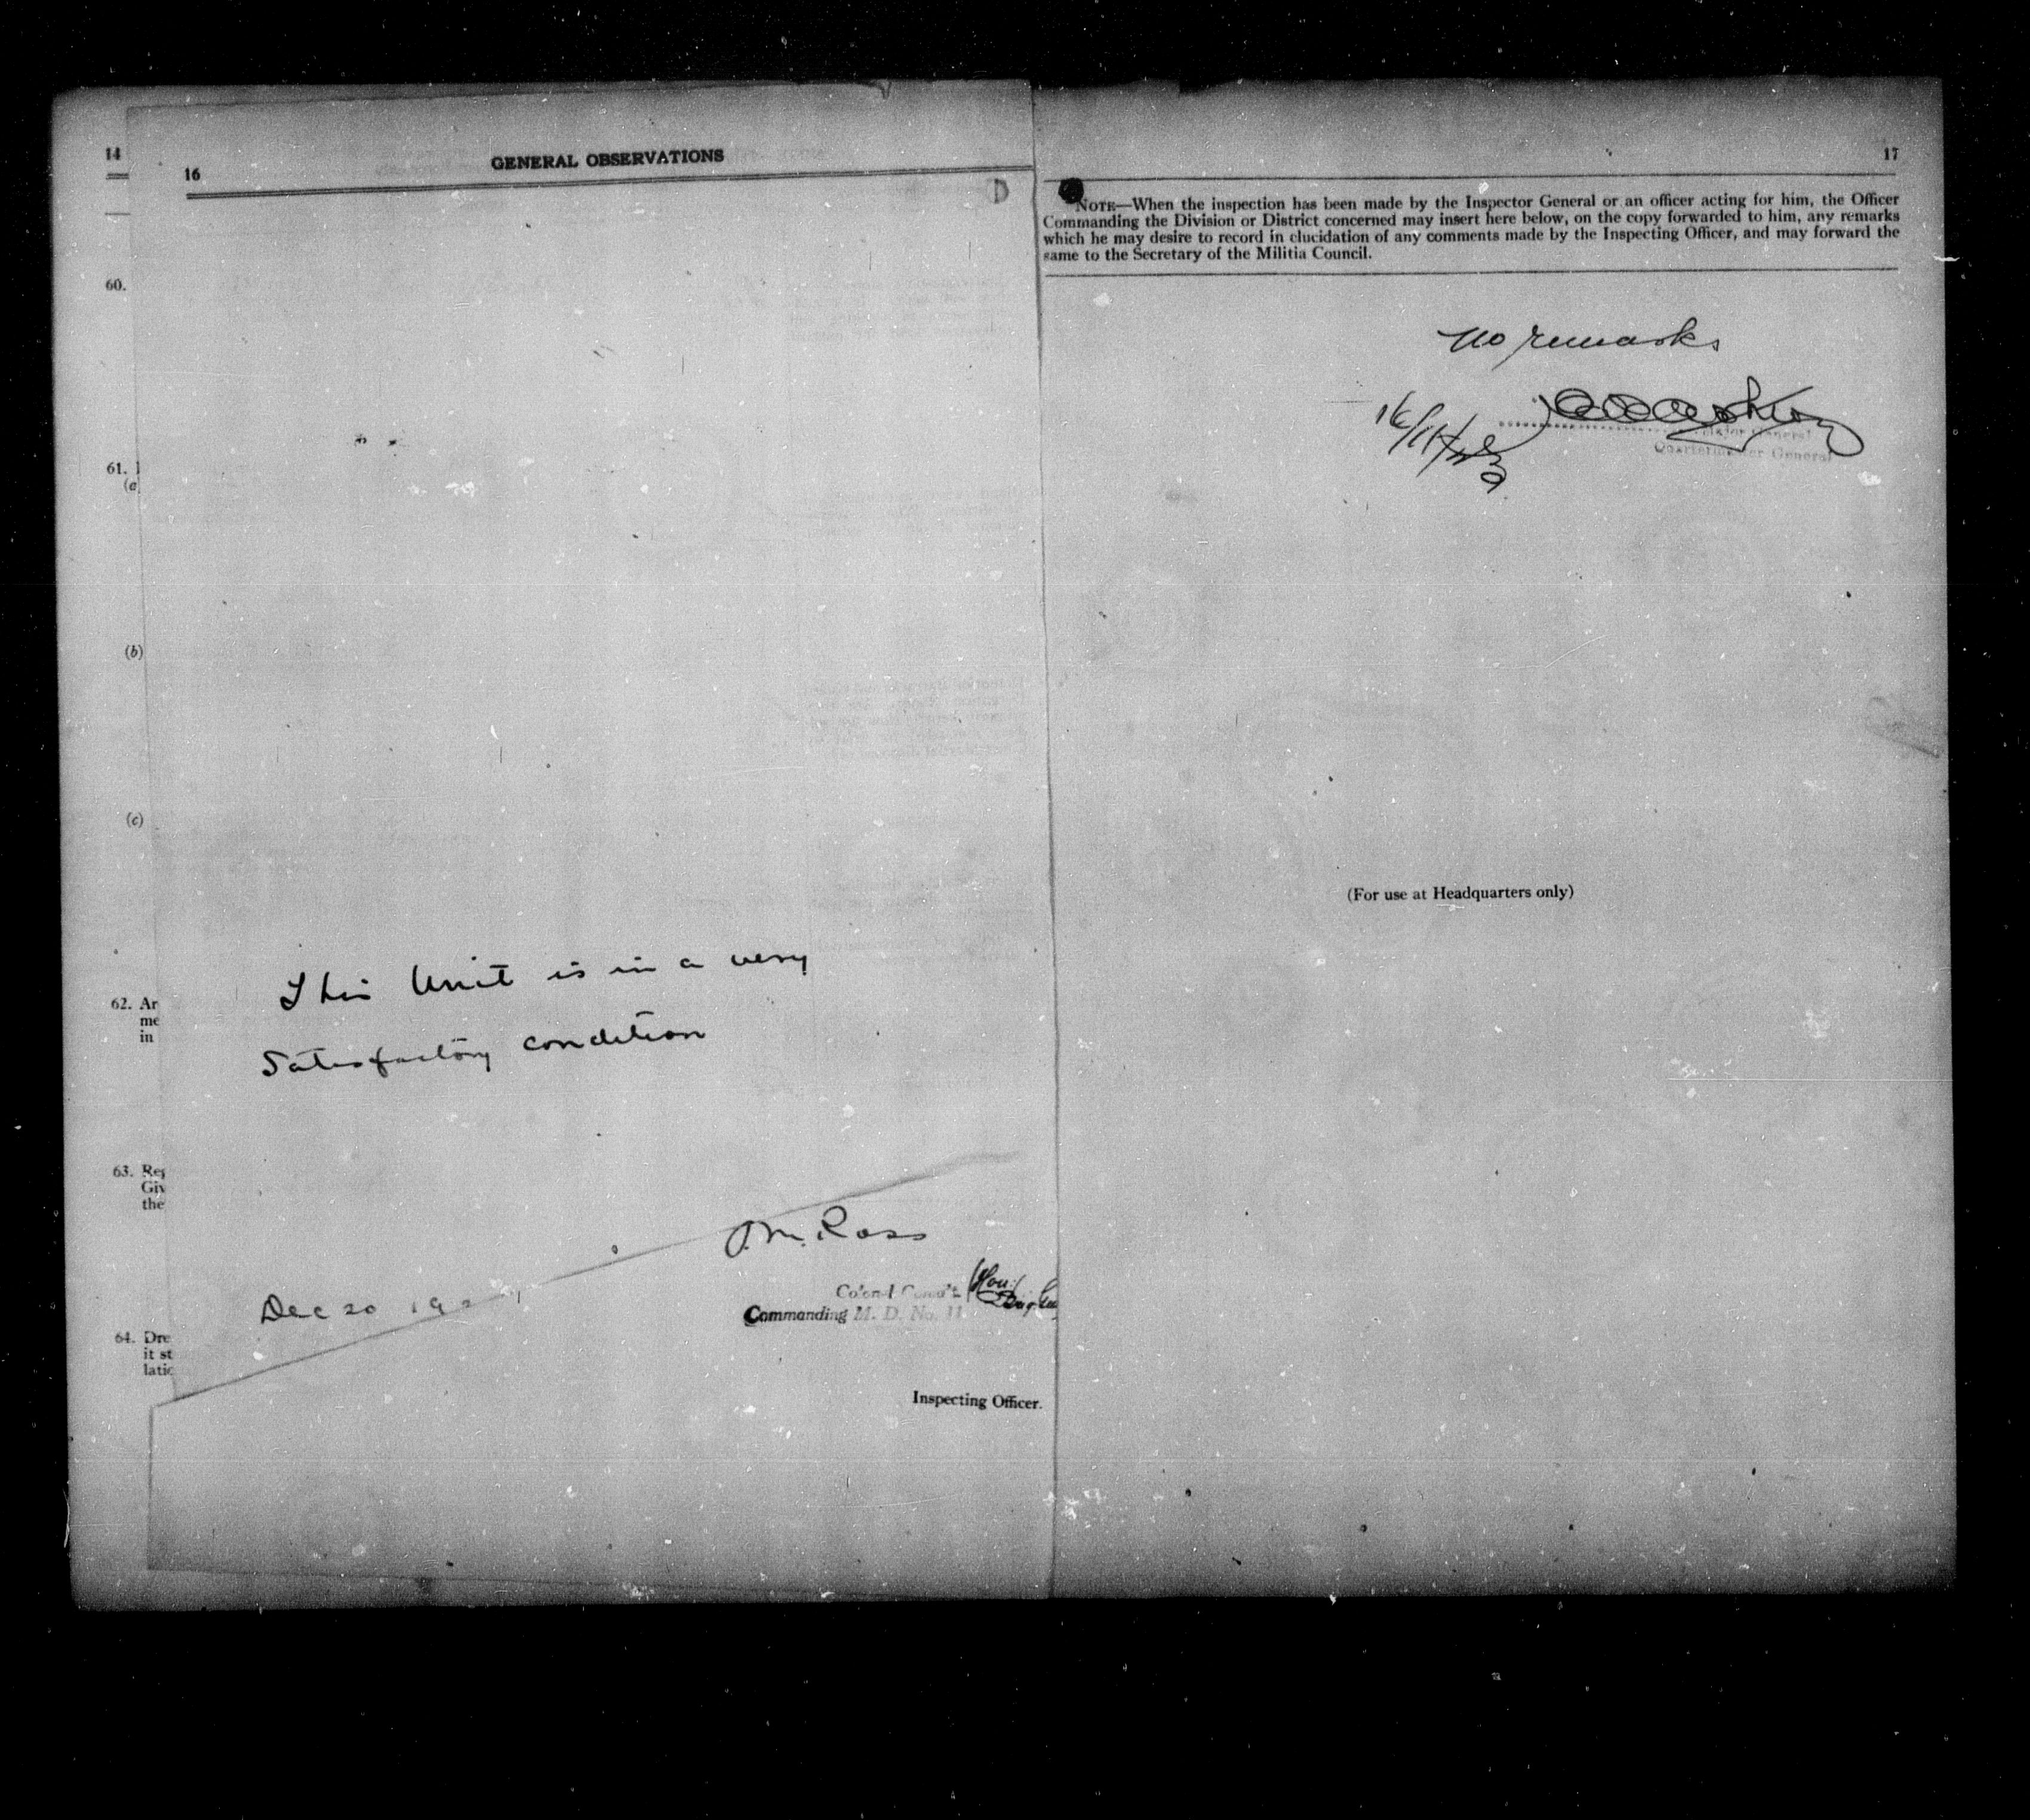 14
60.
61.
(a
(b)
(c)
62. Ar
me
in
63. Rep
Giv
the
64. Dre
it st
latic
16
GENERAL OBSERVATIONS
This Unit is in a very
Satisfactory condition
J.M. Ross
Dec 20
Colonel Comd't. Hon:
Commanding M. D. No. 11
Inspecting Officer.
17
NOTE—When the inspection has been made by the Inspector General or an officer acting for him, the Officer
Commanding the Division or District concerned may insert here below, on the copy forwarded to him, any remarks
which he may desire to record in elucidation of any comments made by the Inspecting Officer, and may forward the
same to the Secretary of the Militia Council.
No remarks
Major General
Quartermaster General
(For use at Headquarters only)